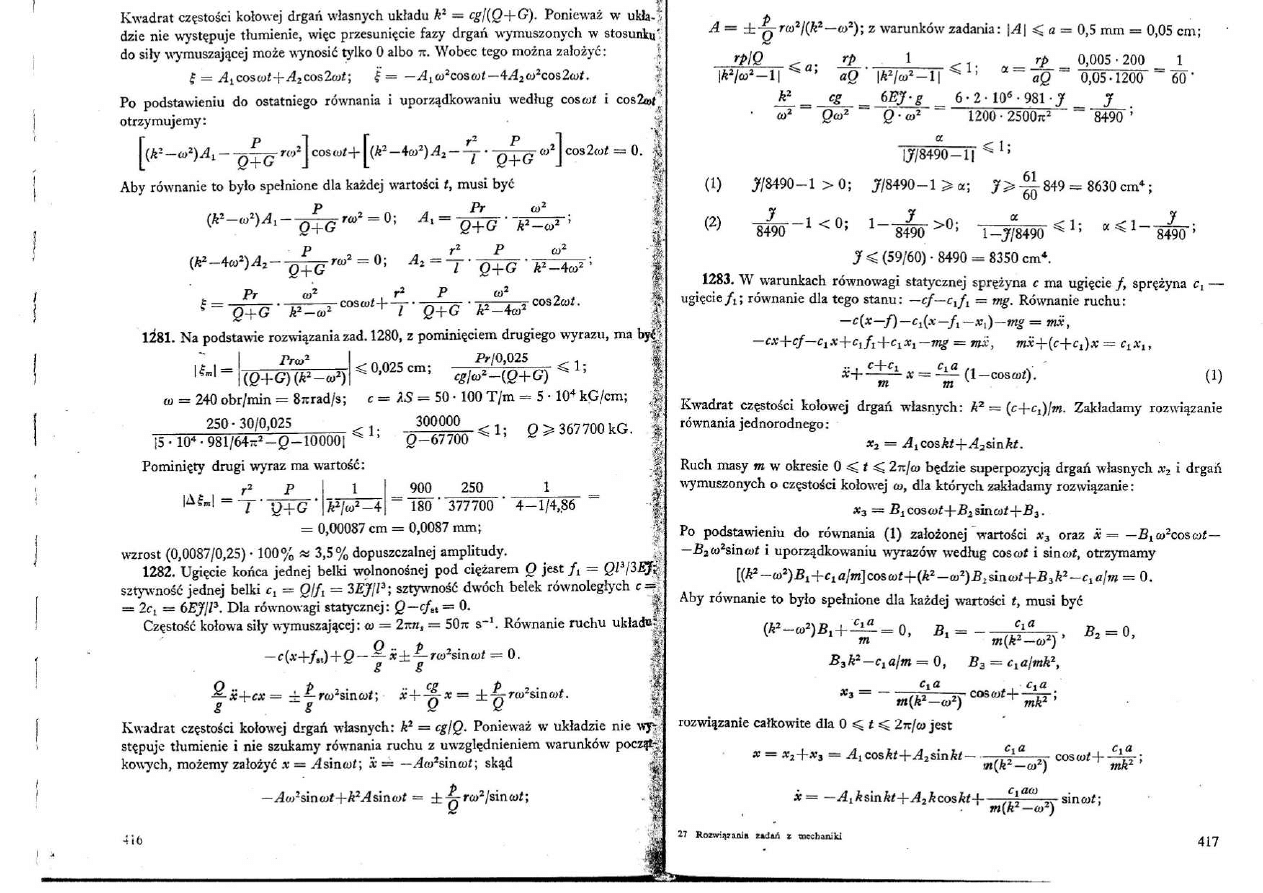 Kwadrat częstości kołowej drgań własnych układu k² = cg/(Q+G). Ponieważ w ukła-
dzie nie występuje tłumienie, więc przesunięcie fazy drgań wymuszonych w stosunku
do siły wymuszającej może wynosić tylko 0 albo π. Wobec tego można założyć:
ξ = A₁cosωt+A₂cos2ωt; ξ̈ = —A₁ω²cosωt—4A₂ω²cos2ωt.
Po podstawieniu do ostatniego równania i uporządkowaniu według cosωt i cos2ωt
otrzymujemy:
[(k²—ω²)A₁— P/(Q+G) rω²]cosωt+[(k²—4ω²)A₂— r²/l · P/(Q+G) ω²]cos2ωt = 0.
Aby równanie to było spełnione dla każdej wartości t, musi być
(k²—ω²)A₁— P/(Q+G) rω² = 0; A₁ = Pr/(Q+G) · ω²/(k²—ω²);
(k²—4ω²)A₂— P/(Q+G) rω² = 0; A₂ = r²/l · P/(Q+G) · ω²/(k²—4ω²);
ξ = Pr/(Q+G) · ω²/(k²—ω²) cosωt+ r²/l · P/(Q+G) · ω²/(k²—4ω²) cos2ωt.
1281. Na podstawie rozwiązania zad. 1280, z pominięciem drugiego wyrazu, ma być
|ξₘ| = |Prω²/((Q+G)(k²—ω²))| ⩽ 0,025 cm; Pr/0,025/(cg/ω²—(Q+G)) ⩽ 1;
ω = 240 obr/min = 8πrad/s; c = λS = 50 · 100 T/m = 5 · 10⁴ kG/cm;
250 · 30/0,025/|5 · 10⁴ · 981/64π²—Q—10000| ⩽ 1; 300000/(Q—67700) ⩽ 1; Q ⩾ 367700 kG.
Pominięty drugi wyraz ma wartość:
|Δξₘ| = r²/l · P/(Q+G) · |1/(k²/ω²—4)| = 900/180 · 250/377700 · 1/(4—1/4,86) =
= 0,00087 cm = 0,0087 mm;
wzrost (0,0087/0,25) · 100% ≈ 3,5% dopuszczalnej amplitudy.
1282. Ugięcie końca jednej belki wolnonośnej pod ciężarem Q jest f₁ = Ql³/3EJ;
sztywność jednej belki c₁ = Q/f₁ = 3EJ/l³; sztywność dwóch belek równoległych c =
= 2c₁ = 6EJ/l³. Dla równowagi statycznej: Q—cfst = 0.
Częstość kołowa siły wymuszającej: ω = 2πnₛ = 50π s⁻¹. Równanie ruchu układu:
—c(x+fst)+Q— Q/g ẍ ± p/g rω²sinωt = 0.
Q/g ẍ+cx = ± p/g rω²sinωt; ẍ+ cg/Q x = ± p/Q rω²sinωt.
Kwadrat częstości kołowej drgań własnych: k² = cg/Q. Ponieważ w układzie nie wy-
stępuje tłumienie i nie szukamy równania ruchu z uwzględnieniem warunków począt-
kowych, możemy założyć x = Asinωt; ẍ = —Aω²sinωt; skąd
—Aω²sinωt+k²Asinωt = ± p/Q rω²/sinωt;
416
A = ± p/Q rω²/(k²—ω²); z warunków zadania: |A| ⩽ a = 0,5 mm = 0,05 cm;
rp/Q/|k²/ω²—1| ⩽ a; rp/aQ · 1/|k²/ω²—1| ⩽ 1; α = rp/aQ = 0,005 · 200/0,05·1200 = 1/60.
k²/ω² = cg/Qω² = 6EJ·g/Q·ω² = 6·2·10⁶·981·J/1200·2500π² = J/8490;
α/|J/8490—1| ⩽ 1;
(1) J/8490—1 > 0; J/8490—1 ⩾ α; J ⩾ 61/60 849 = 8630 cm⁴;
(2) J/8490 —1 < 0; 1— J/8490 >0; α/(1—J/8490) ⩽ 1; α ⩽ 1— J/8490;
J ⩽ (59/60) · 8490 = 8350 cm⁴.
1283. W warunkach równowagi statycznej sprężyna c ma ugięcie f, sprężyna c₁ —
ugięcie f₁; równanie dla tego stanu: —cf—c₁f₁ = mg. Równanie ruchu:
—c(x—f)—c₁(x—f₁—x₁)—mg = mẍ,
—cx+cf—c₁x+c₁f₁+c₁x₁—mg = mẍ, mẍ+(c+c₁)x = c₁x₁,
ẍ+ (c+c₁)/m x = c₁a/m (1—cosωt). (1)
Kwadrat częstości kołowej drgań własnych: k² = (c+c₁)/m. Zakładamy rozwiązanie
równania jednorodnego:
x₂ = A₁coskt+A₂sinkt.
Ruch masy m w okresie 0 ⩽ t ⩽ 2π/ω będzie superpozycją drgań własnych x₂ i drgań
wymuszonych o częstości kołowej ω, dla których zakładamy rozwiązanie:
x₃ = B₁cosωt+B₂sinωt+B₃.
Po podstawieniu do równania (1) założonej wartości x₃ oraz ẍ = —B₁ω²cosωt—
—B₂ω²sinωt i uporządkowaniu wyrazów według cosωt i sinωt, otrzymamy
[(k²—ω²)B₁+c₁a/m]cosωt+(k²—ω²)B₂sinωt+B₃k²—c₁a/m = 0.
Aby równanie to było spełnione dla każdej wartości t, musi być
(k²—ω²)B₁+ c₁a/m = 0, B₁ = — c₁a/m(k²—ω²), B₂ = 0,
B₃k²—c₁a/m = 0, B₃ = c₁a/mk²,
x₃ = — c₁a/m(k²—ω²) cosωt+ c₁a/mk²;
rozwiązanie całkowite dla 0 ⩽ t ⩽ 2π/ω jest
x = x₂+x₃ = A₁coskt+A₂sinkt— c₁a/m(k²—ω²) cosωt+ c₁a/mk²;
ẋ = —A₁ksinkt+A₂kcoskt+ c₁aω/m(k²—ω²) sinωt;
27 Rozwiązania zadań z mechaniki
417